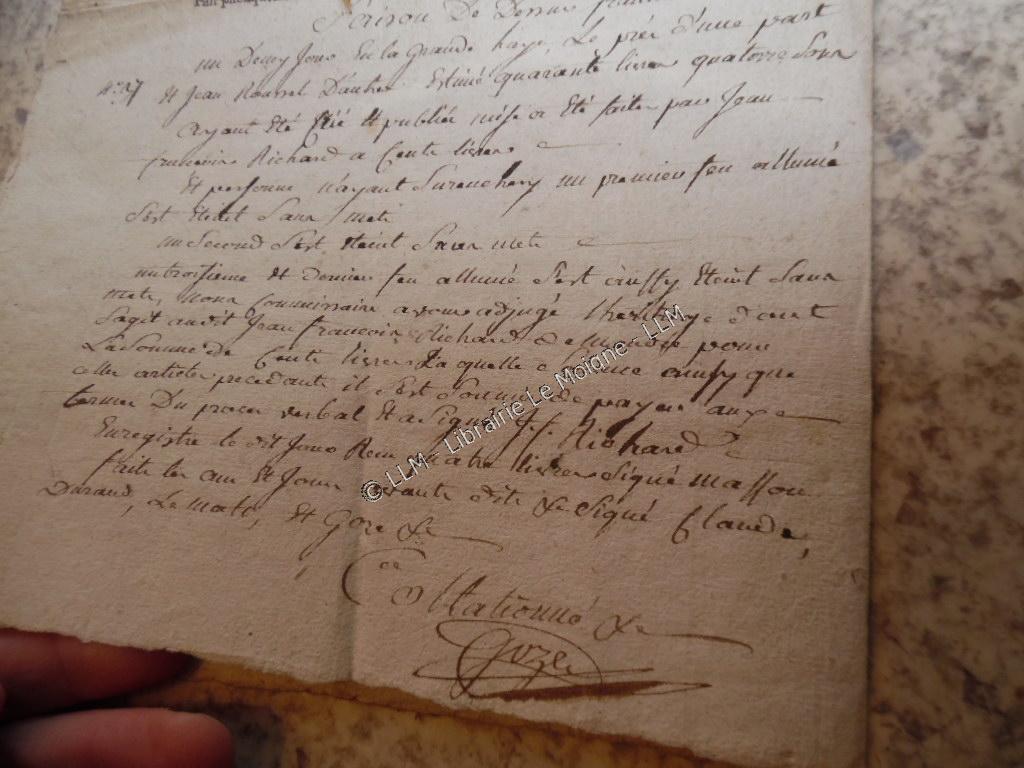 De Dessus
un Demy Jour En la Grande haye, Le prée d'une part
n.° 37
Et Jean Roussel D'autre Estimé quarante livres quatorze Sous
ayant Eté Crié Et publiée mise a Eté faite par Jean
francoins Richard a Cente livres
Et personne n'ayant Surenchery un premier feu allumé
S'est Eteint Sans mete
un Second S'est Eteint Sans mete
untroisieme et dernier feu allumé S'est aussy Eteint Sans
mete, nous Commissaire avons adjugé l'heritage dont
Sagit audit Jean francoins Richard pour
La Somme de Cente livres La quelle Somme aussy que
celles articles precedents il S'est Soumis de payer aux
termes Du proces verbal Et a Signé J.f. Richard
Enregistre le dit Jour livres Signé masson
faite les an Et Jour avante dite &c Signé Claude,
Durand, Lemats, Et Goze &c
Collationné &c
Goze
© LLM - Librairie Le Moigne - LLM